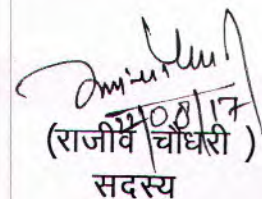 22/08/17
(राजीव चौधरी )
सदस्य